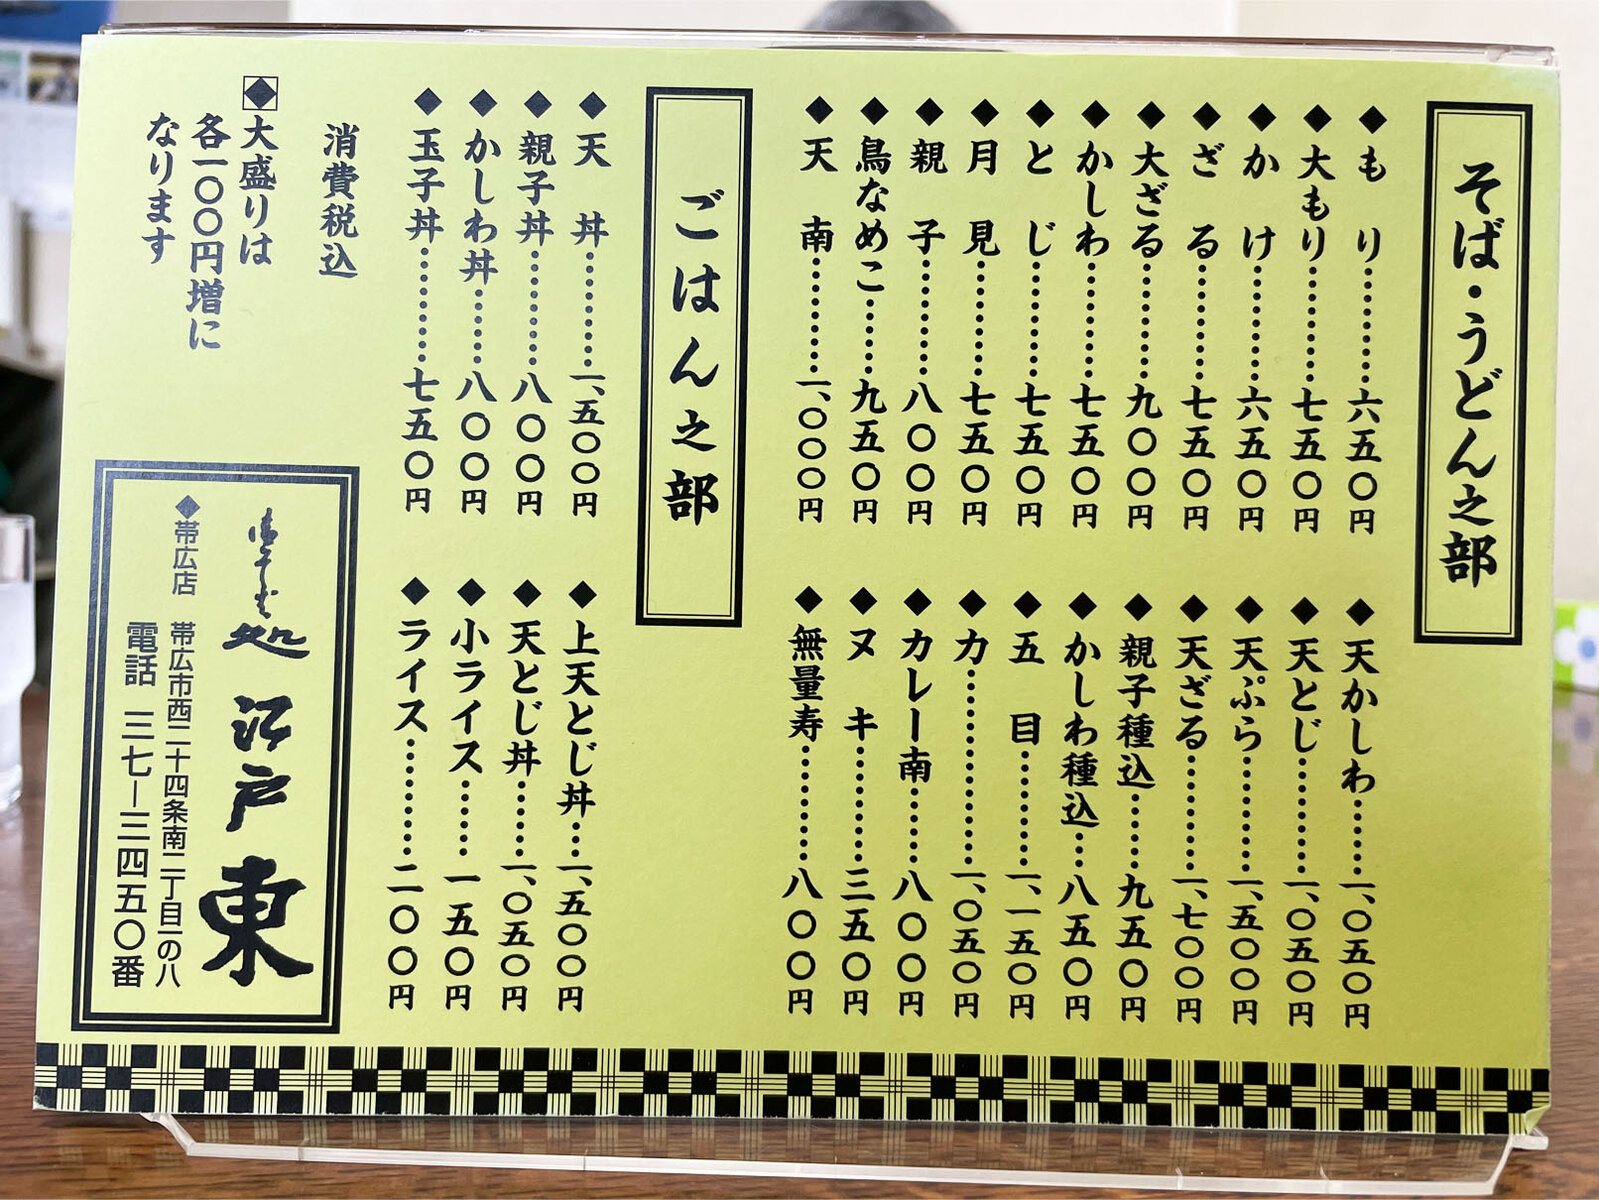 そば・うどん之部
◆もり…………六五〇円
◆大もり…………七五〇円
◆かけ…………六五〇円
◆ざる…………七五〇円
◆大ざる…………九〇〇円
◆かしわ…………七五〇円
◆とじ…………七五〇円
◆月見…………七五〇円
◆親子…………八〇〇円
◆鳥なめこ…………九五〇円
◆天南…………一、〇〇〇円
◆天かしわ…………一、〇五〇円
◆天とじ…………一、〇五〇円
◆天ぷら…………一、五〇〇円
◆天ざる…………一、七〇〇円
◆親子種込…………九五〇円
◆かしわ種込……八五〇円
◆五目…………一、一五〇円
◆力…………一、〇五〇円
◆カレー南…………八〇〇円
◆ヌキ…………三五〇円
◆無量寿…………八〇〇円
ごはん之部
◆天丼…………一、五〇〇円
◆親子丼…………八〇〇円
◆かしわ丼…………八〇〇円
◆玉子丼…………七五〇円
◆上天とじ丼……一、五〇〇円
◆天とじ丼…………一、〇五〇円
◆小ライス…………一五〇円
◆ライス…………二〇〇円
消費税込
◆大盛りは
各一〇〇円増に
なります
処 江戸東
◆帯広店 帯広市西二十四条南二丁目一の八
電話 三七ー三四五〇番